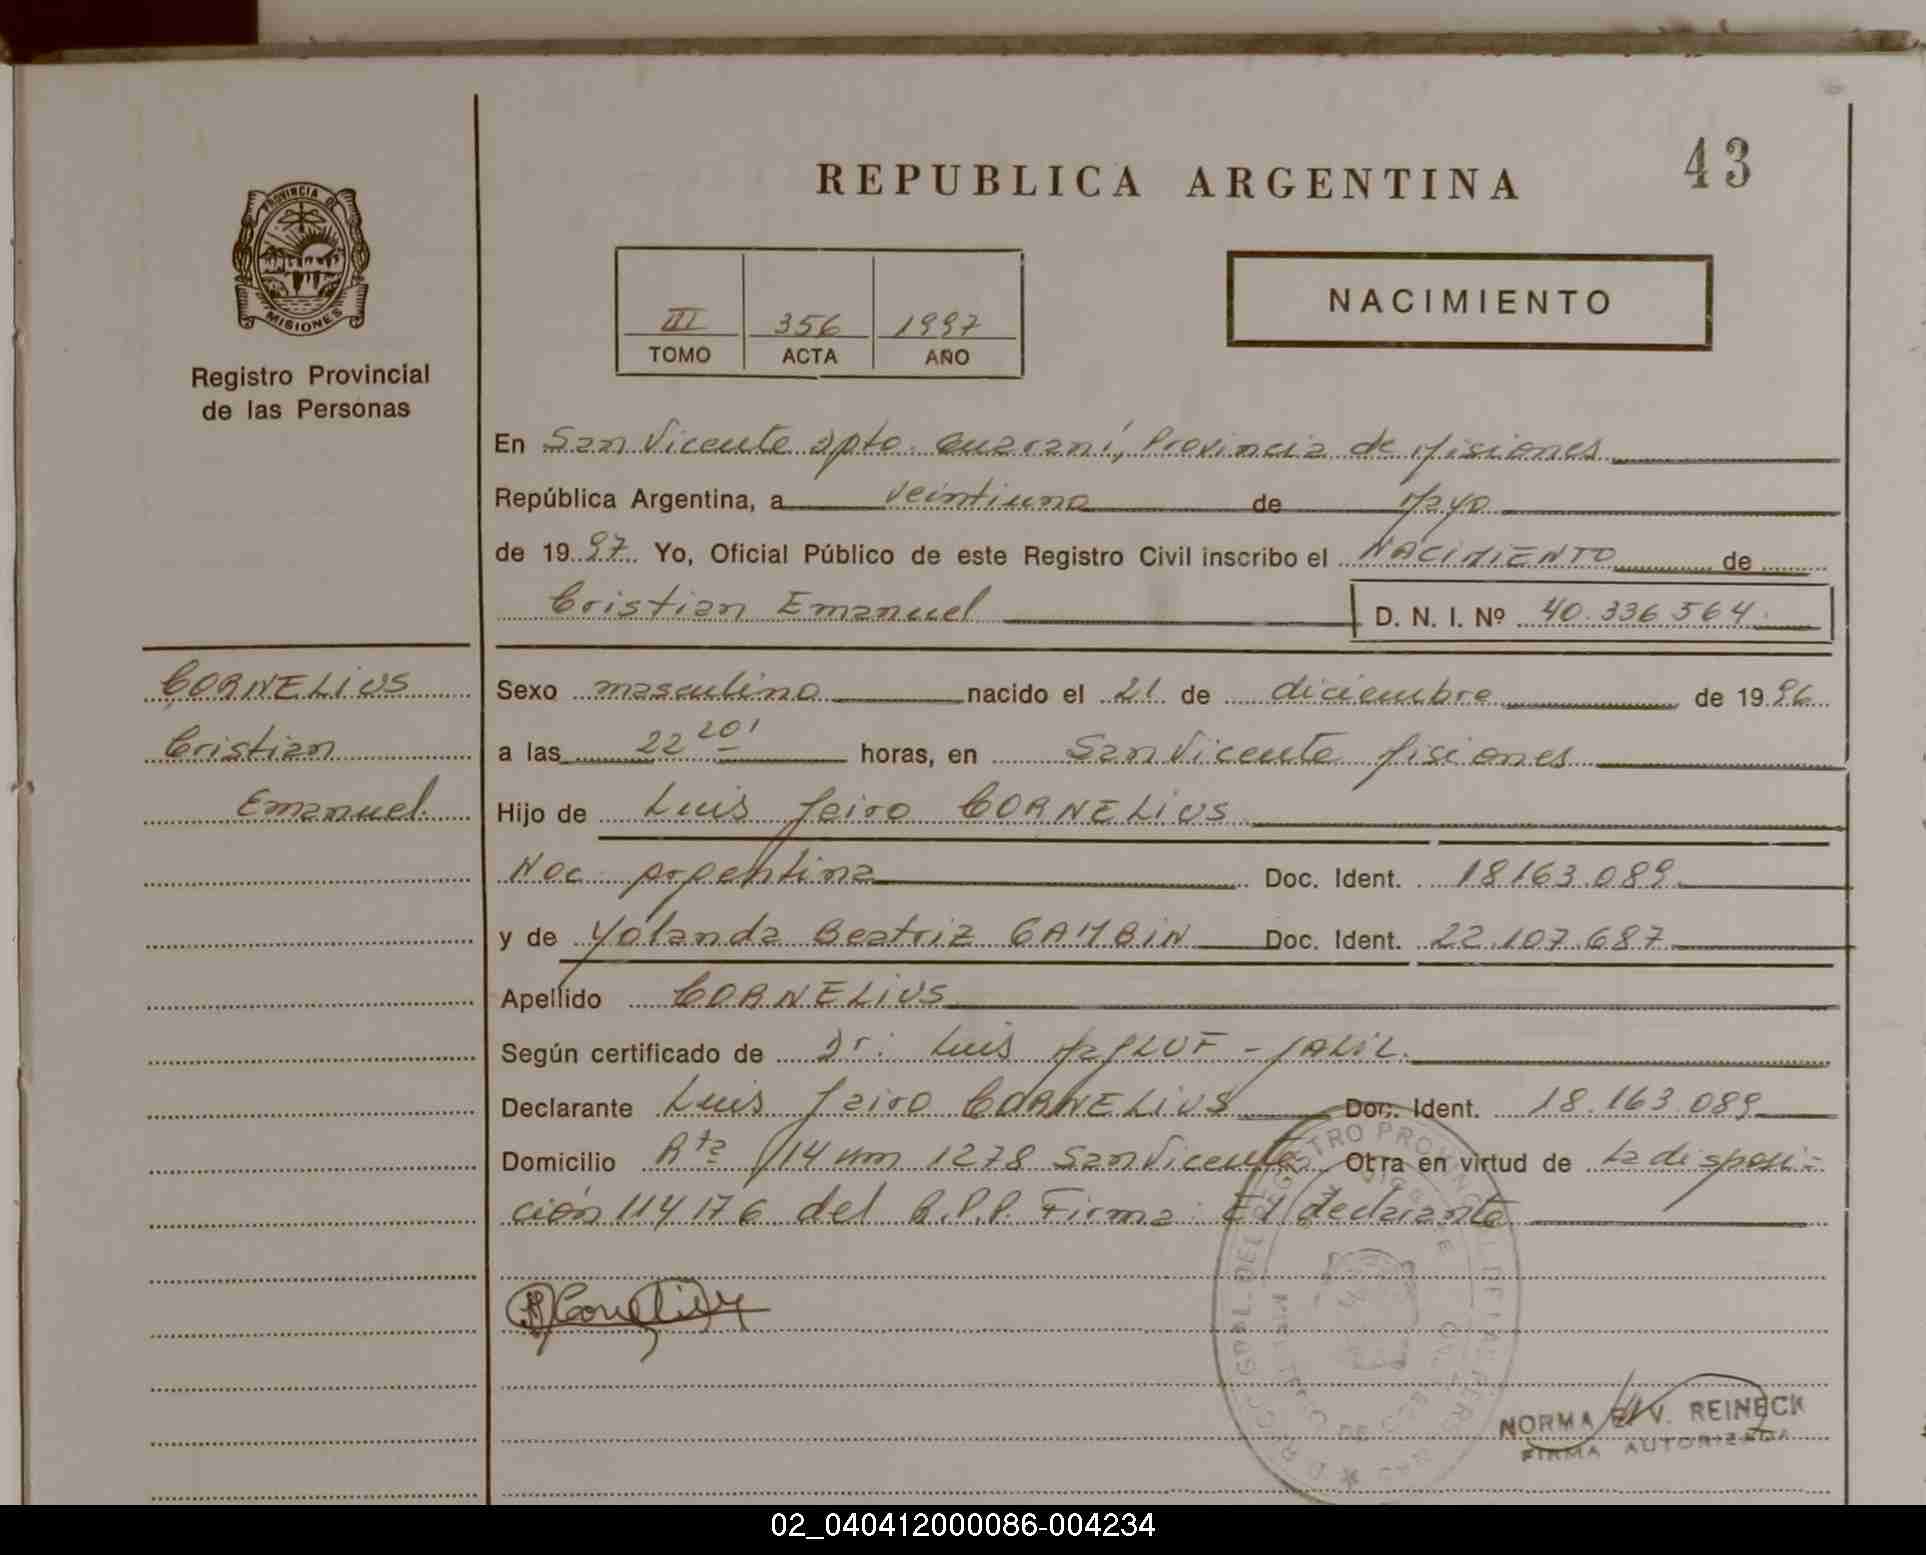 43
REPUBLICA ARGENTINA
PROVINCIA DE
MISIONES
Registro Provincial
de las Personas
III 356 1997
TOMO ACTA AÑO
NACIMIENTO
En San Vicente Dpto. Guaraní, Provincia de Misiones
República Argentina, a veintiuno de Mayo
de 1997. Yo, Oficial Público de este Registro Civil inscribo el NACIMIENTO de
Cristian Emanuel D. N. I. Nº 40.336.564
CORNELIUS
Cristian
Emanuel
Sexo masculino nacido el 21 de diciembre de 1996
a las 22 20' horas, en San Vicente Misiones
Hijo de Luis Jairo CORNELIUS
Nac. Argentina Doc. Ident. 18163.089
y de Yolanda Beatriz GAMBIN Doc. Ident. 22.107.687
Apellido CORNELIUS
Según certificado de Dr. Luis
Declarante Luis Jairo CORNELIUS Doc. Ident. 18.163.089
Domicilio Rta 14 Km 1278 San Vicente Otra en virtud de La disposi-
ción 114176 del R.P.P. Firma: El declarante
NORMA V. REINECK
FIRMA AUTORIZADA
02_040412000086-004234